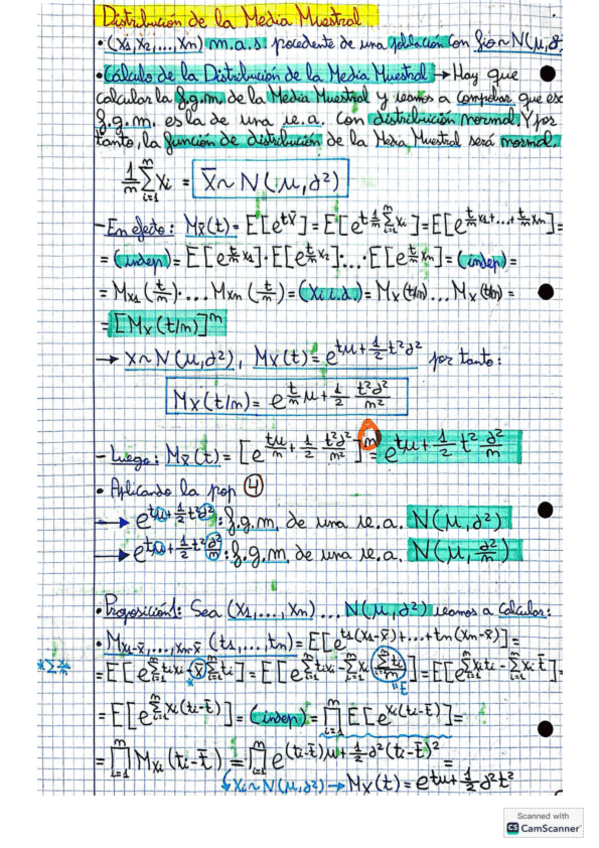 Distribución de la Media Muestral
• (X1, X2, ... Xn) m.a.s. procedente de una población con fión ~ N(μ, ∂
• Cálculo de la Distribución de la Media Muestral → Hay que
calcular la f.g.m. de la Media Muestral y veamos a comprobar que es
f.g.m. es la de una v.a. con distribución normal. Y por
tanto, la función de distribución de la Media Muestral será normal.
1/m Σ_{i=1}^{m} Xi = X̄ ~ N(μ, ∂²)
- En efecto: M_X̄(t) = E[e^{tX̄}] = E[e^{t 1/m Σ_{i=1}^{m} Xi}] = E[e^{t/m X1 + ... + t/m Xm}] =
= (indep) = E[e^{t/m X1}] · E[e^{t/m X2}] · ... · E[e^{t/m Xn}] = (indep) =
= M_X1(t/m) · ... M_Xm(t/m) = (Xi i.d.) = M_X(t/m) ... M_X(t/m) =
= [M_X(t/m)]^m
→ X ~ N(μ, ∂²), M_X(t) = e^{tμ + 1/2 t²∂²} por tanto:
M_X(t/m) = e^{t/m μ + 1/2 t²∂²/m²}
- Luego: M_X̄(t) = [e^{tμ/m + 1/2 t²∂²/m²}]^m = e^{tμ + 1/2 t² ∂²/m}
• Aplicando la pop 4
→ e^{tμ + 1/2 t²∂²} : f.g.m. de una v.a. N(μ, ∂²)
→ e^{tμ + 1/2 t² ∂²/m} : f.g.m. de una v.a. N(μ, ∂²/m)
• Proposición1: Sea (X1, ..., Xn) ... N(μ, ∂²) veamos a calcular:
• M_{X1-X̄, ..., Xn-X̄}(t1, ..., tn) = E[e^{t1(X1-X̄) + ... + tn(Xn-X̄)}] =
*Σ Xi/m
= E[e^{Σ_{i=1}^{m} tiXi - X̄ Σ_{i=1}^{m} ti}] = E[e^{Σ_{i=1}^{m} tiXi - Σ_{i=1}^{m} Xi (Σ_{i=1}^{m} ti/m)}] = E[e^{Σ_{i=1}^{m} Xiti - Σ_{i=1}^{m} Xi t̄}] =
*
"t̄
= E[e^{Σ_{i=1}^{m} Xi(ti-t̄)}] = (indep) = Π_{i=1}^{m} E[e^{Xi(ti-t̄)}] =
= Π_{i=1}^{m} M_Xi(ti-t̄) = Π_{i=1}^{m} e^{(ti-t̄)μ + 1/2 ∂²(ti-t̄)²} =
Xi ~ N(μ, ∂²) → M_X(t) = e^{tμ + 1/2 ∂²t²}
Scanned with
CS CamScanner